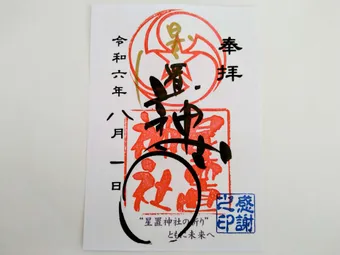 奉拝
星置神社
星置神社
令和六年八月一日
感謝
之印
"星置神社の祈り"
ともに未来へ